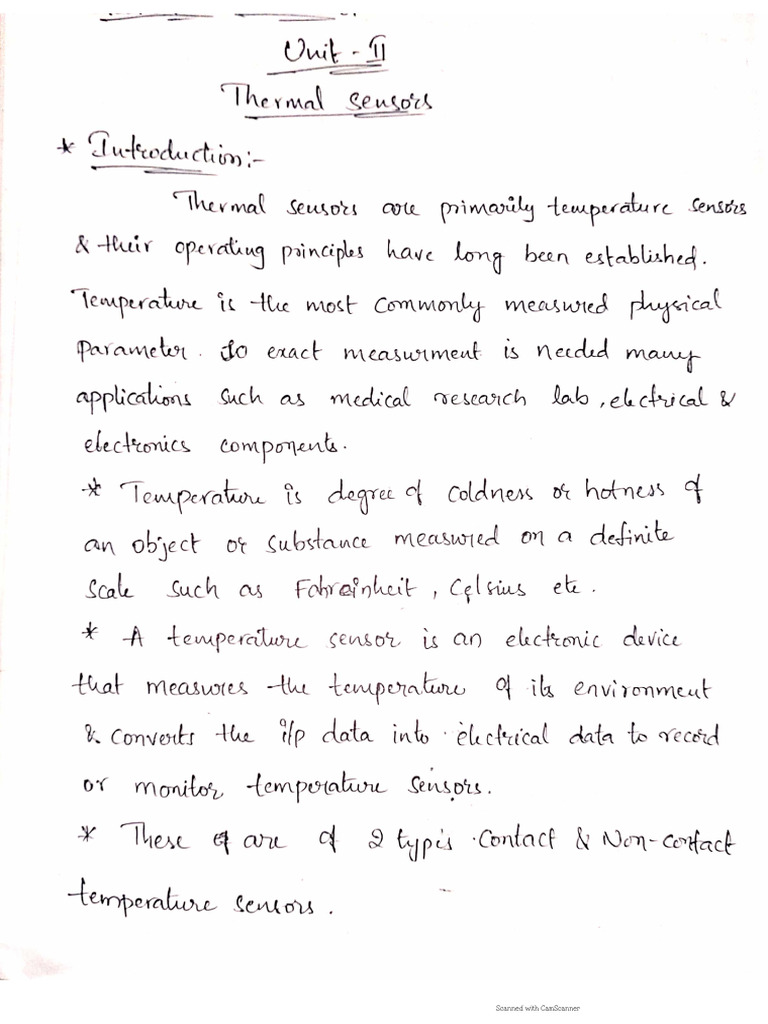 Unit - II
Thermal sensors
* Introduction:-
Thermal sensors are primarily temperature sensors
& their operating principles have long been established.
Temperature is the most commonly measured physical
parameter. So exact measurment is needed many
applications such as medical research lab, electrical &
electronics components.
* Temperature is degree of coldness or hotness of
an object or substance measured on a definite
scale such as Fahreinheit, Celsius etc.
* A temperature sensor is an electronic device
that measures the temperature of its environment
& converts the i/p data into electrical data to record
or monitor temperature sensors.
* These are of 2 types. Contact & Non-contact
temperature sensors.
Scanned with CamScanner